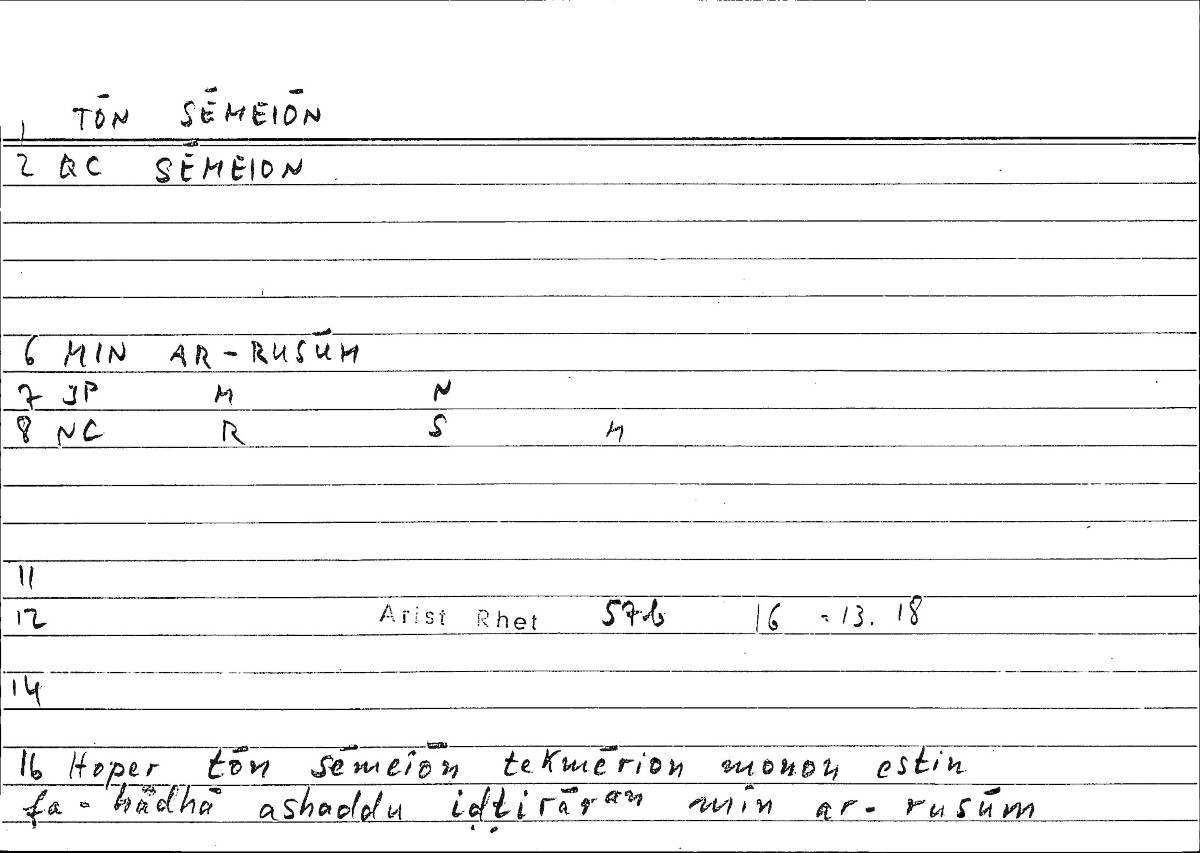 1 TŌN SĒMEIŌN
2 QC SĒMEION
6 MIN AR-RUSŪM
7 JP M N
8 NC R S M
11
12 Arist Rhet 57b 16 = 13. 18
14
16 Hoper tōn sēmeiōn tekmērion monon estin
fa-hādhā ashaddu iḍṭirāran min ar-rusūm